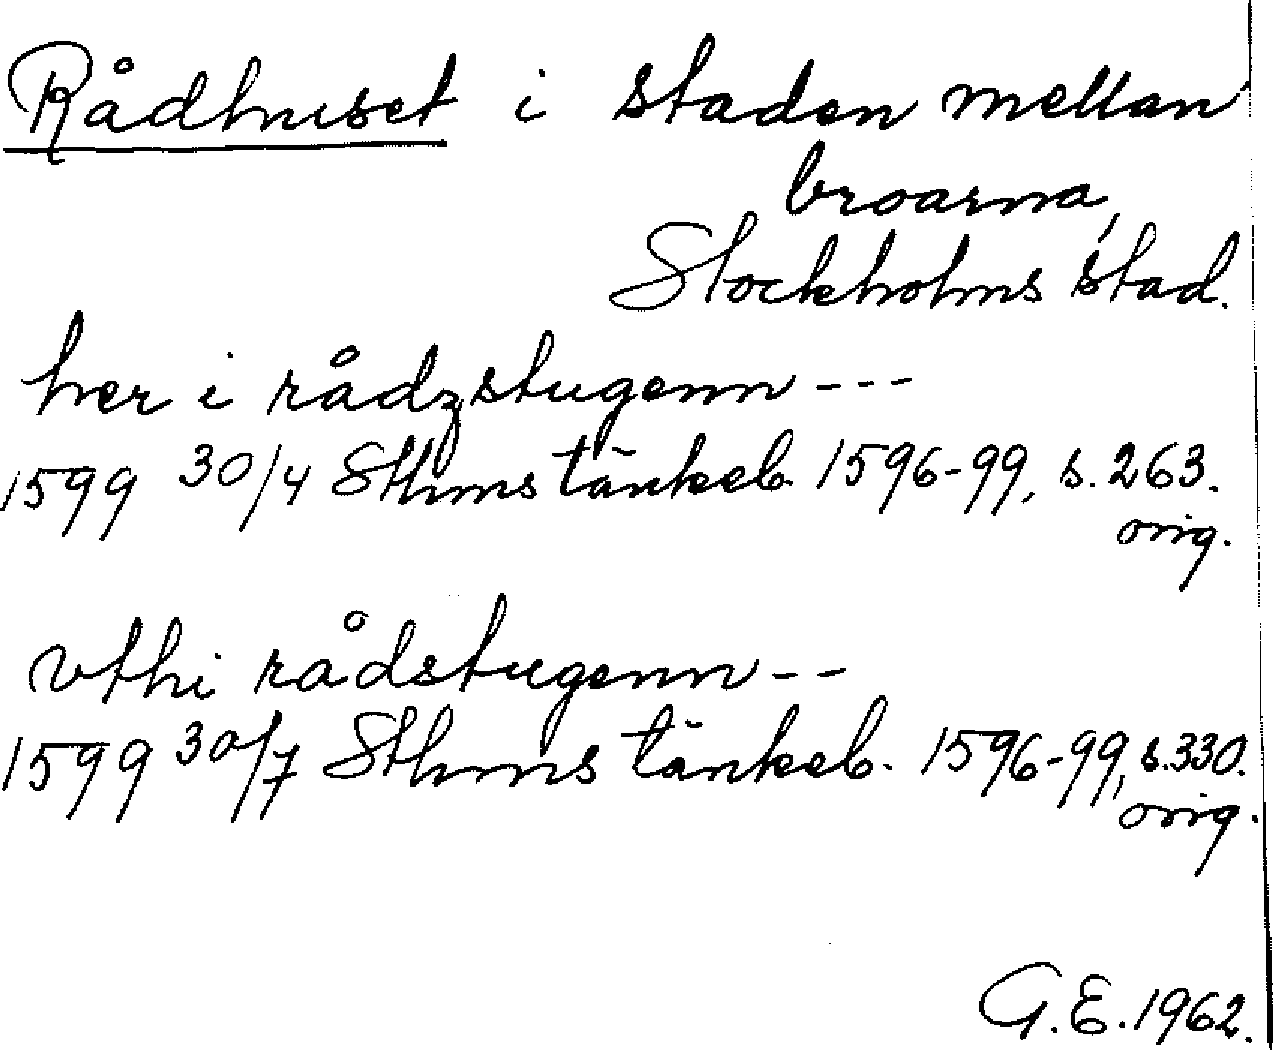 Rådhuset i staden mellan
broarna,
Stockholms stad.
her i rådzstugenn ---
1599 30/4 Sthms tänkeb. 1596-99, s. 263.
orig.
vthi rådstugenn --
1599 30/7 Sthms tänkeb. 1596-99, s. 330.
orig.
G. E. 1962.